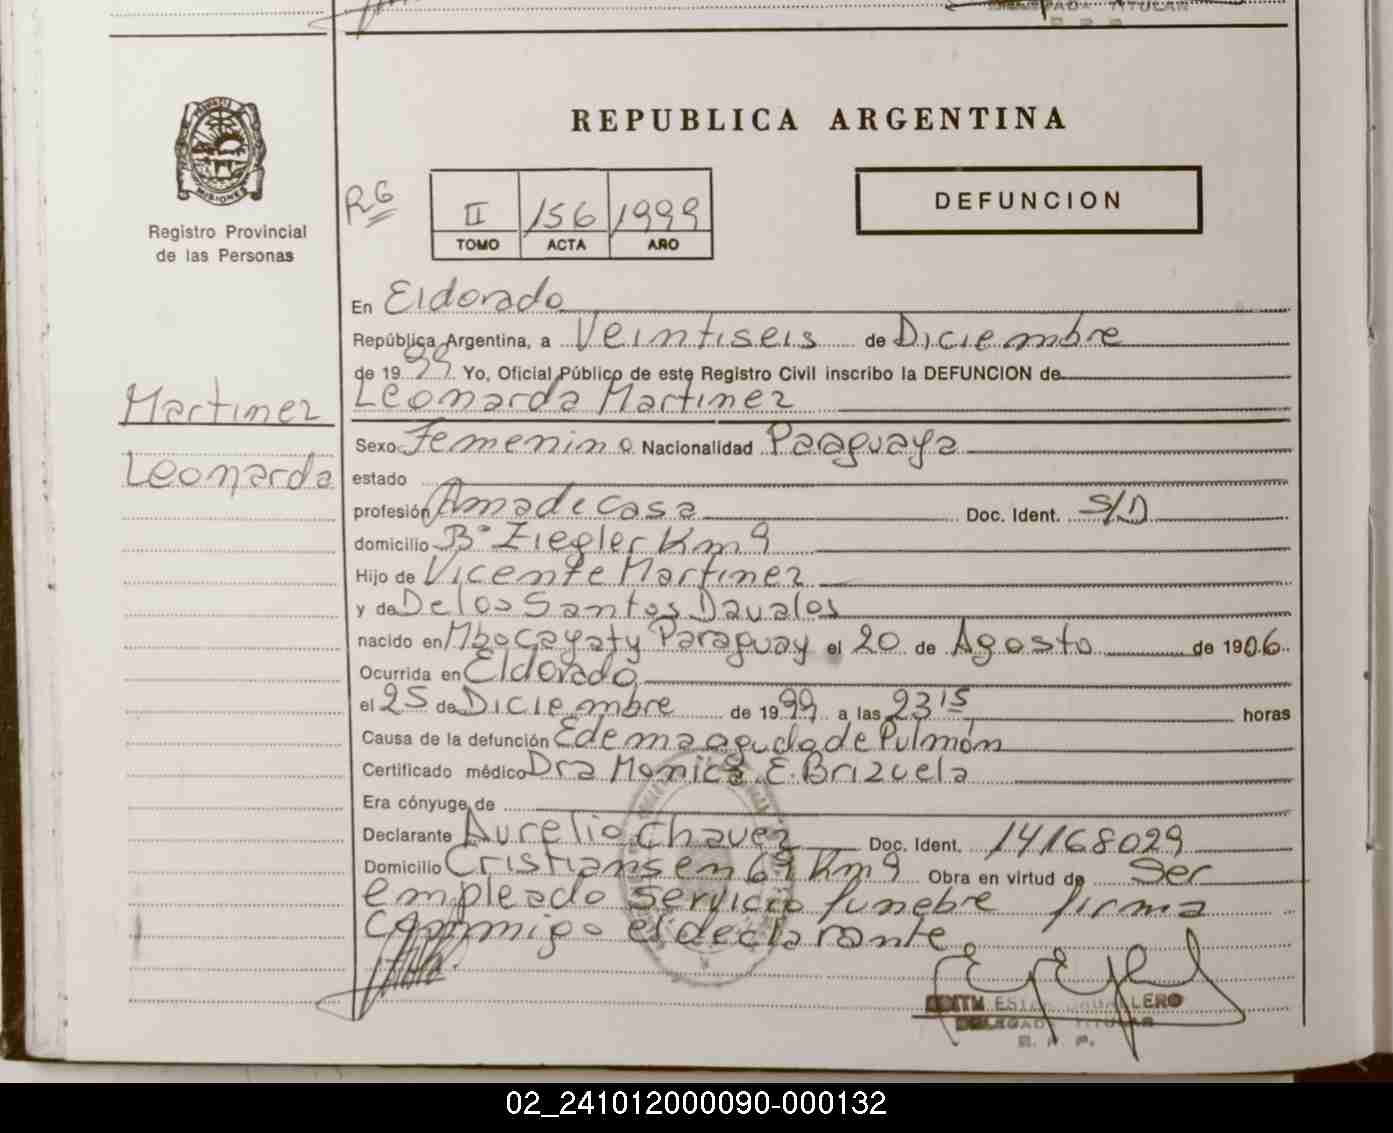 REPUBLICA ARGENTINA
MISIONES
Registro Provincial
de las Personas
RG
II 156 1999
TOMO ACTA AÑO
DEFUNCION
En Eldorado
República Argentina, a Veintiseis de Diciembre
de 1999 Yo, Oficial Público de este Registro Civil inscribo la DEFUNCION de
Martinez
Leonarda Martinez
Leonarda
Sexo Femenino Nacionalidad Paraguaya
estado
profesión Ama de casa Doc. Ident. S/D
domicilio Bº Ziegler Km 9
Hijo de Vicente Martinez
y de De los Santos Davalos
nacido en Mbocayaty Paraguay el 20 de Agosto de 1906
Ocurrida en Eldorado
el 25 de Diciembre de 1999 a las 23 15 horas
Causa de la defunción Edema agudo de Pulmón
Certificado médico Dra Monica E. Brizuela
Era cónyuge de
Declarante Aurelio Chavez Doc. Ident. 14168029
Domicilio Cristiansen 69 Km 9 Obra en virtud de Ser
empleado servicio funebre firma
conmigo el declarante
DELEGADA TITULAR
R. P. P.
02_241012000090-000132